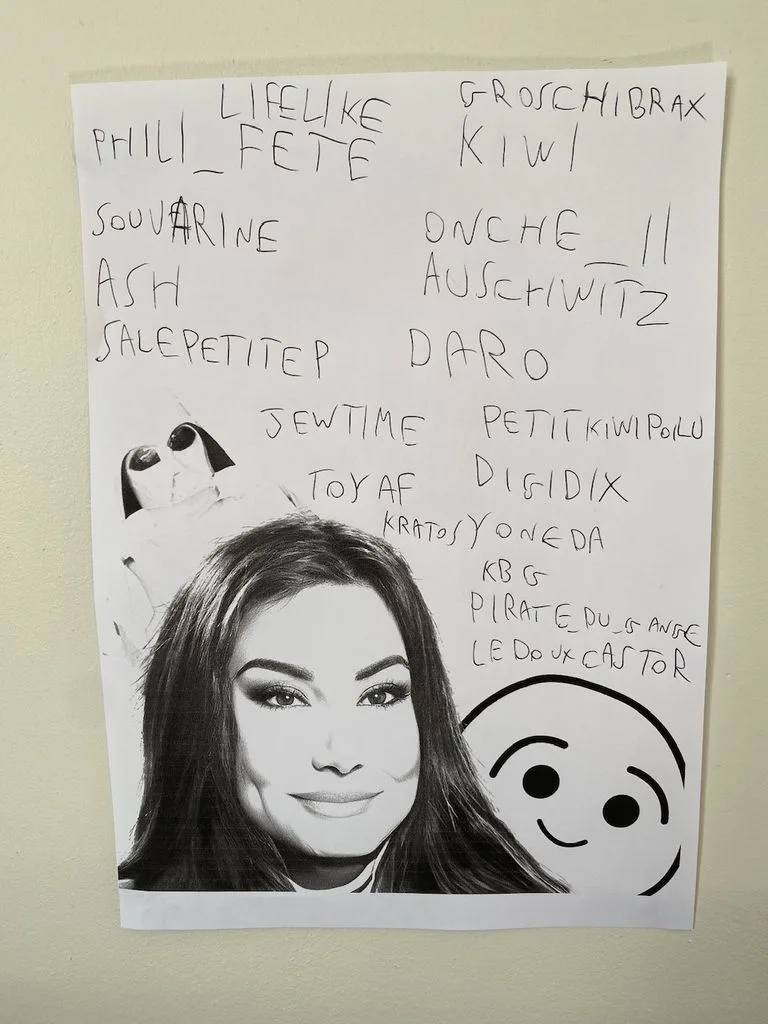 LIFELIKE
GROSCHIBRAX
PHILI_FETE
KIWI
SOUVARINE
ONCHE_11
ASH
AUSCHWITZ
SALEPETITEP
DARO
JEWTIME
PETITKIWIPOILU
TOYAF
DIGIDIX
KRATOS
YONEDA
KBG
PIRATE_DU_GANGE
LEDOUXCASTOR